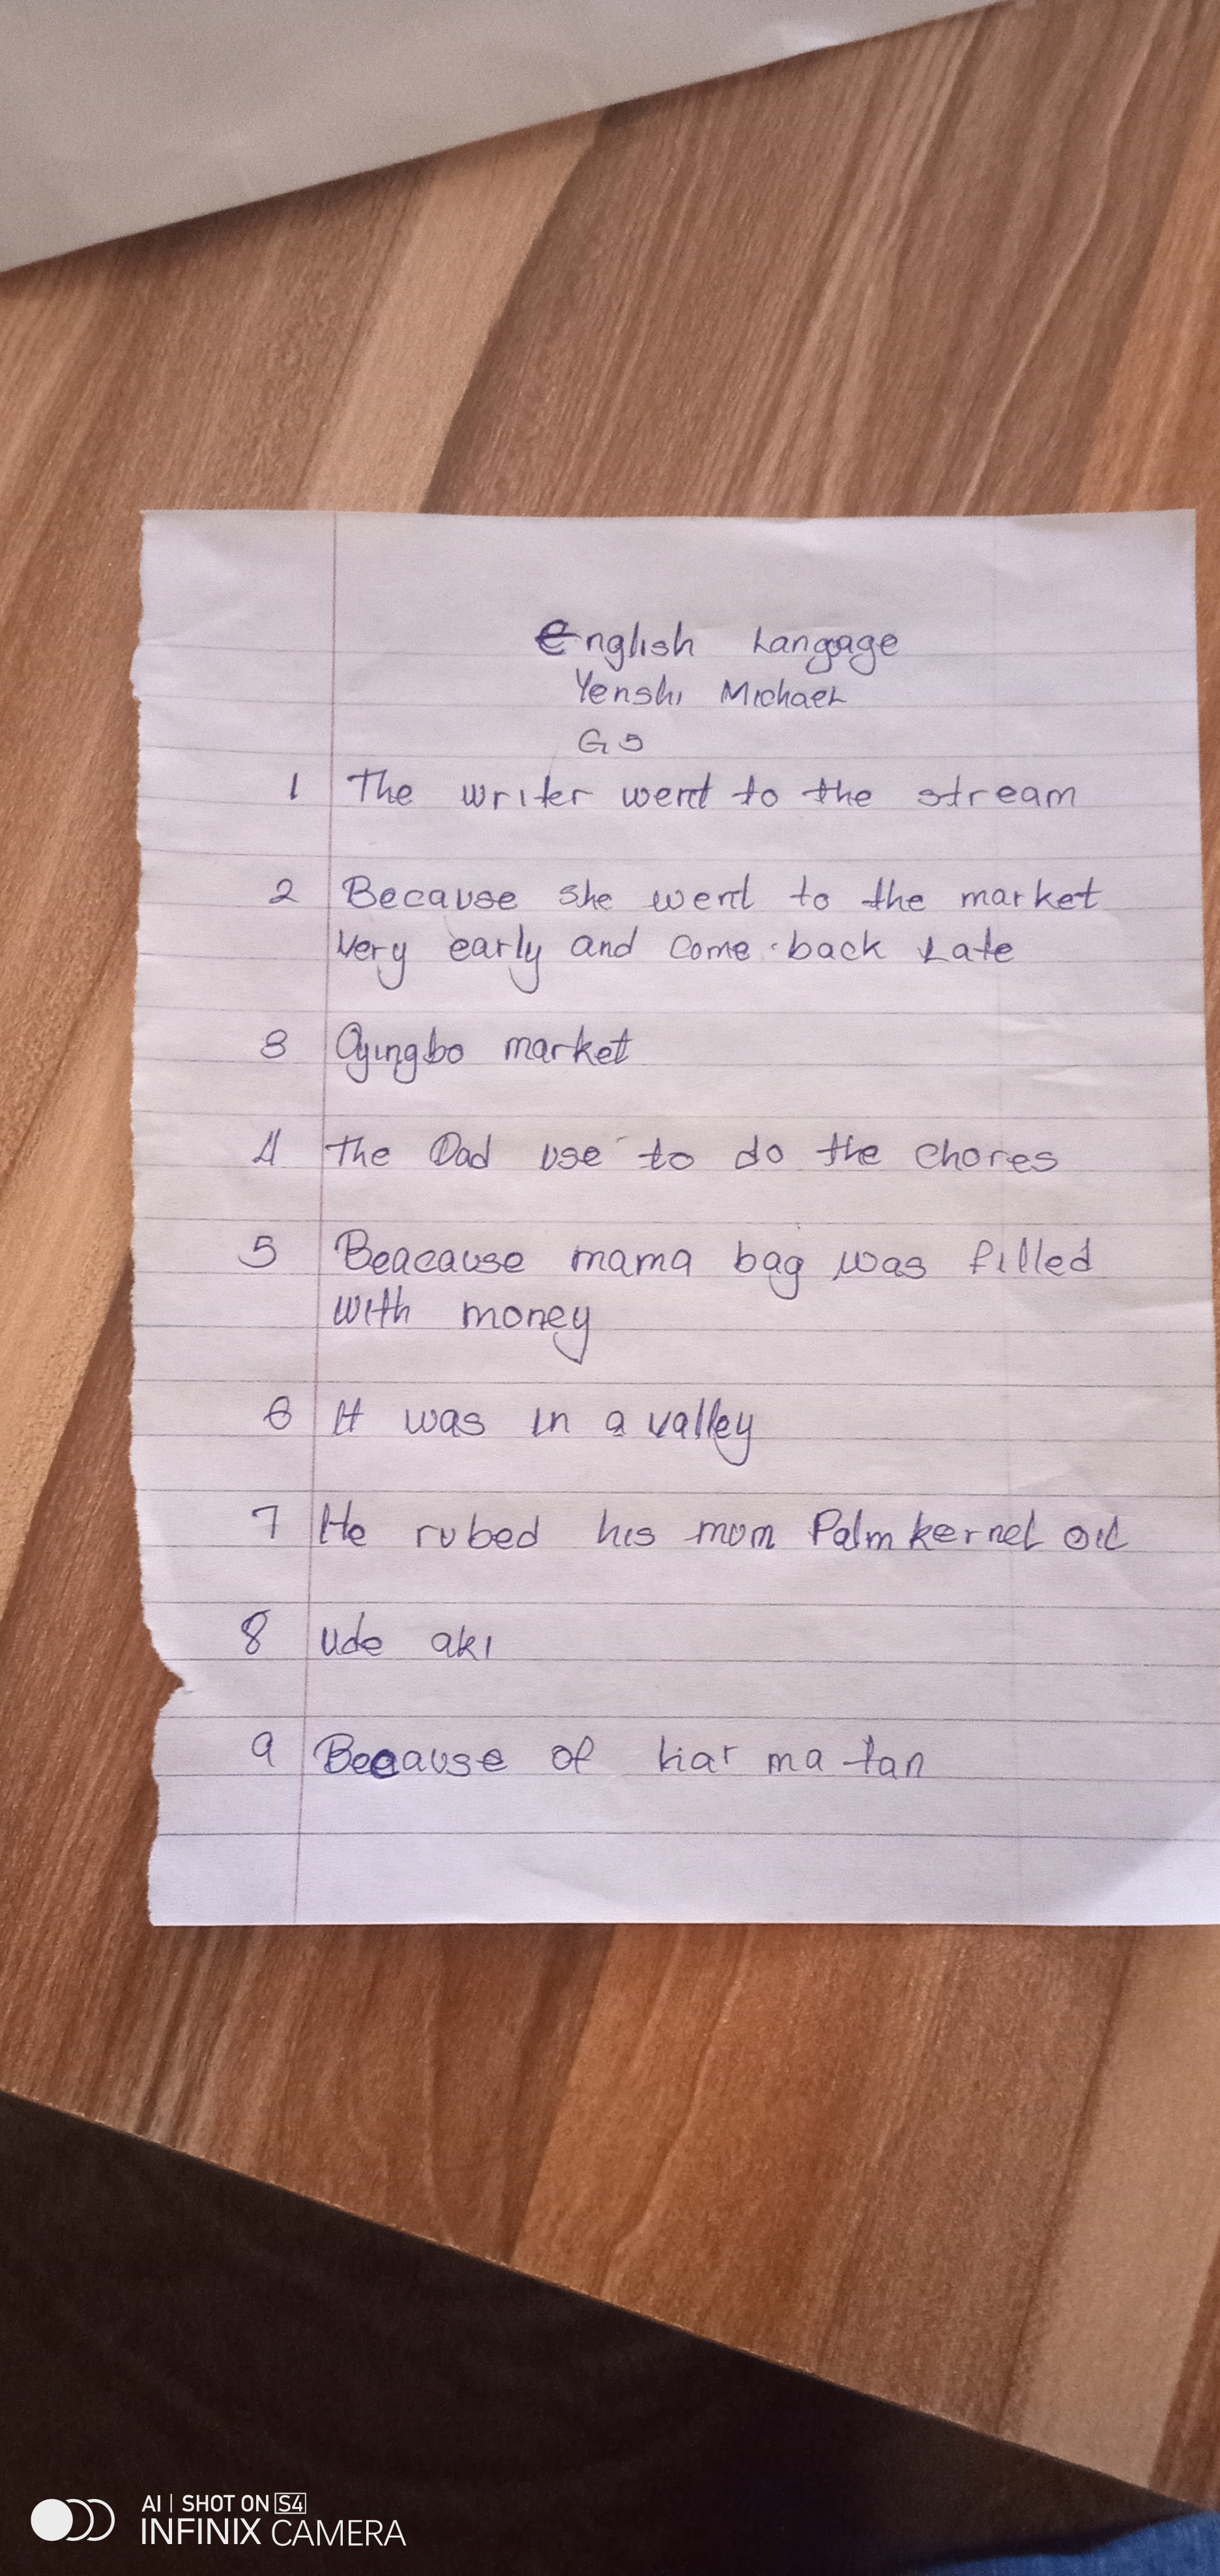 English Langage
Yenshi Michael
G5
1 The writer went to the stream
2 Because she went to the market
very early and come back Late
3 Oyingbo market
4 The Dad use to do the chores
5 Beacause mama bag was filled
with money
6 It was in a valley
7 He rubed his mum Palm kernel oil
8 ude aki
9 Because of har ma tan
AI | SHOT ON S4
INFINIX CAMERA